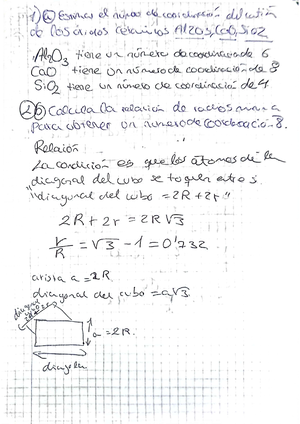 1) a) Escribir el número de coordinación del catión
de los óxidos cerámicos Al2O3, CaO, SiO2
Al2O3 tiene un número de coordinación de 6
CaO tiene un número de coordinación de 8
SiO2 tiene un número de coordinación de 4
2) b) Calcula la relación de radios
para obtener un número de coordinación 8.
Relación
La condición es que los átomos de la
diagonal del cubo se toquen entre sí
"diagonal del cubo = 2R + 2r"
2R + 2r = 2R√3
r/R = √3 - 1 = 0'732
arista a = 2R
diagonal del cubo = a√3
diagonal
a = 2R.